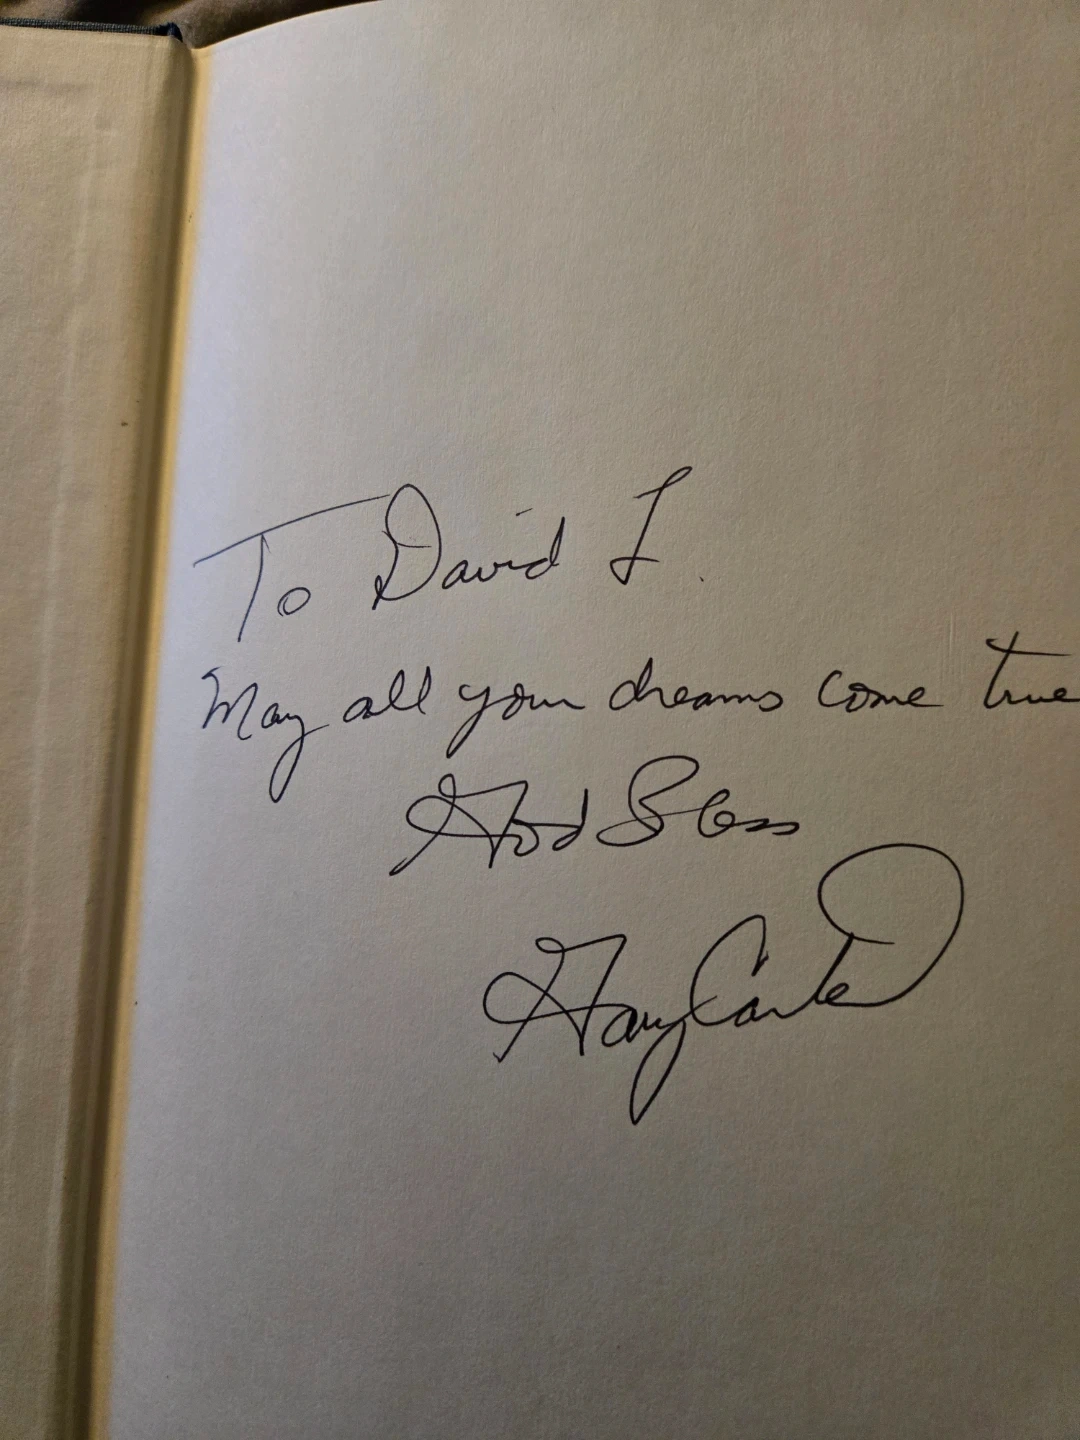 To David L.
May all your dreams come true
God Bless
Gary Carter